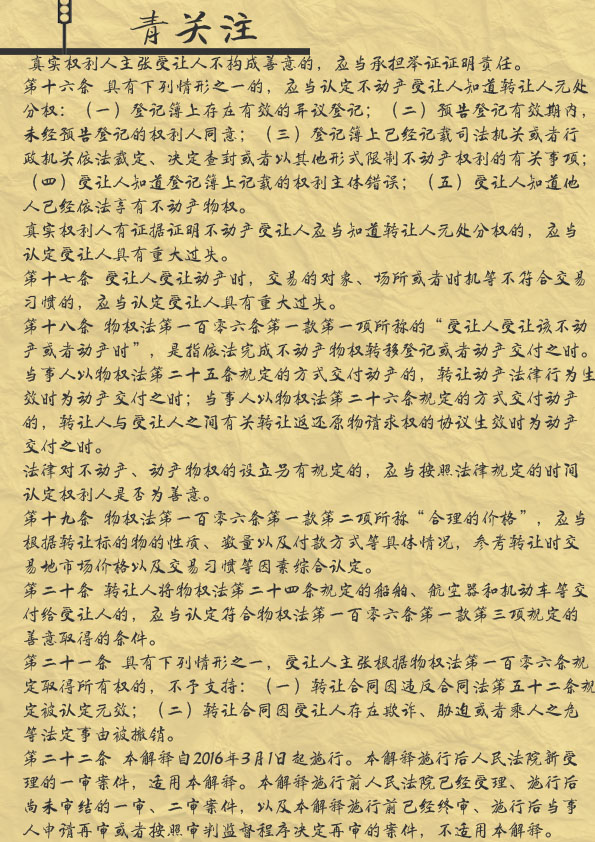 青关注
真实权利人主张受让人不构成善意的，应当承担举证证明责任。
第十六条 具有下列情形之一的，应当认定不动产受让人知道转让人无处
分权：（一）登记簿上存在有效的异议登记；（二）预告登记有效期内，
未经预告登记的权利人同意；（三）登记簿上已经记载司法机关或者行
政机关依法裁定、决定查封或者以其他形式限制不动产权利的有关事项；
（四）受让人知道登记簿上记载的权利主体错误；（五）受让人知道他
人已经依法享有不动产物权。
真实权利人有证据证明不动产受让人应当知道转让人无处分权的，应当
认定受让人具有重大过失。
第十七条 受让人受让动产时，交易的对象、场所或者时机等不符合交易
习惯的，应当认定受让人具有重大过失。
第十八条 物权法第一百零六条第一款第一项所称的“受让人受让该不动
产或者动产时”，是指依法完成不动产物权转移登记或者动产交付之时。
当事人以物权法第二十五条规定的方式交付动产的，转让动产法律行为生
效时为动产交付之时；当事人以物权法第二十六条规定的方式交付动产
的，转让人与受让人之间有关转让返还原物请求权的协议生效时为动产
交付之时。
法律对不动产、动产物权的设立另有规定的，应当按照法律规定的时间
认定权利人是否为善意。
第十九条 物权法第一百零六条第一款第二项所称“合理的价格”，应当
根据转让标的物的性质、数量以及付款方式等具体情况，参考转让时交
易地市场价格以及交易习惯等因素综合认定。
第二十条 转让人将物权法第二十四条规定的船舶、航空器和机动车等交
付给受让人的，应当认定符合物权法第一百零六条第一款第三项规定的
善意取得的条件。
第二十一条 具有下列情形之一，受让人主张根据物权法第一百零六条规
定取得所有权的，不予支持：（一）转让合同因违反合同法第五十二条规
定被认定无效；（二）转让合同因受让人存在欺诈、胁迫或者乘人之危
等法定事由被撤销。
第二十二条 本解释自2016年3月1日起施行。本解释施行后人民法院新受
理的一审案件，适用本解释。本解释施行前人民法院已经受理、施行后
尚未审结的一审、二审案件，以及本解释施行前已经终审、施行后当事
人申请再审或者按照审判监督程序决定再审的案件，不适用本解释。